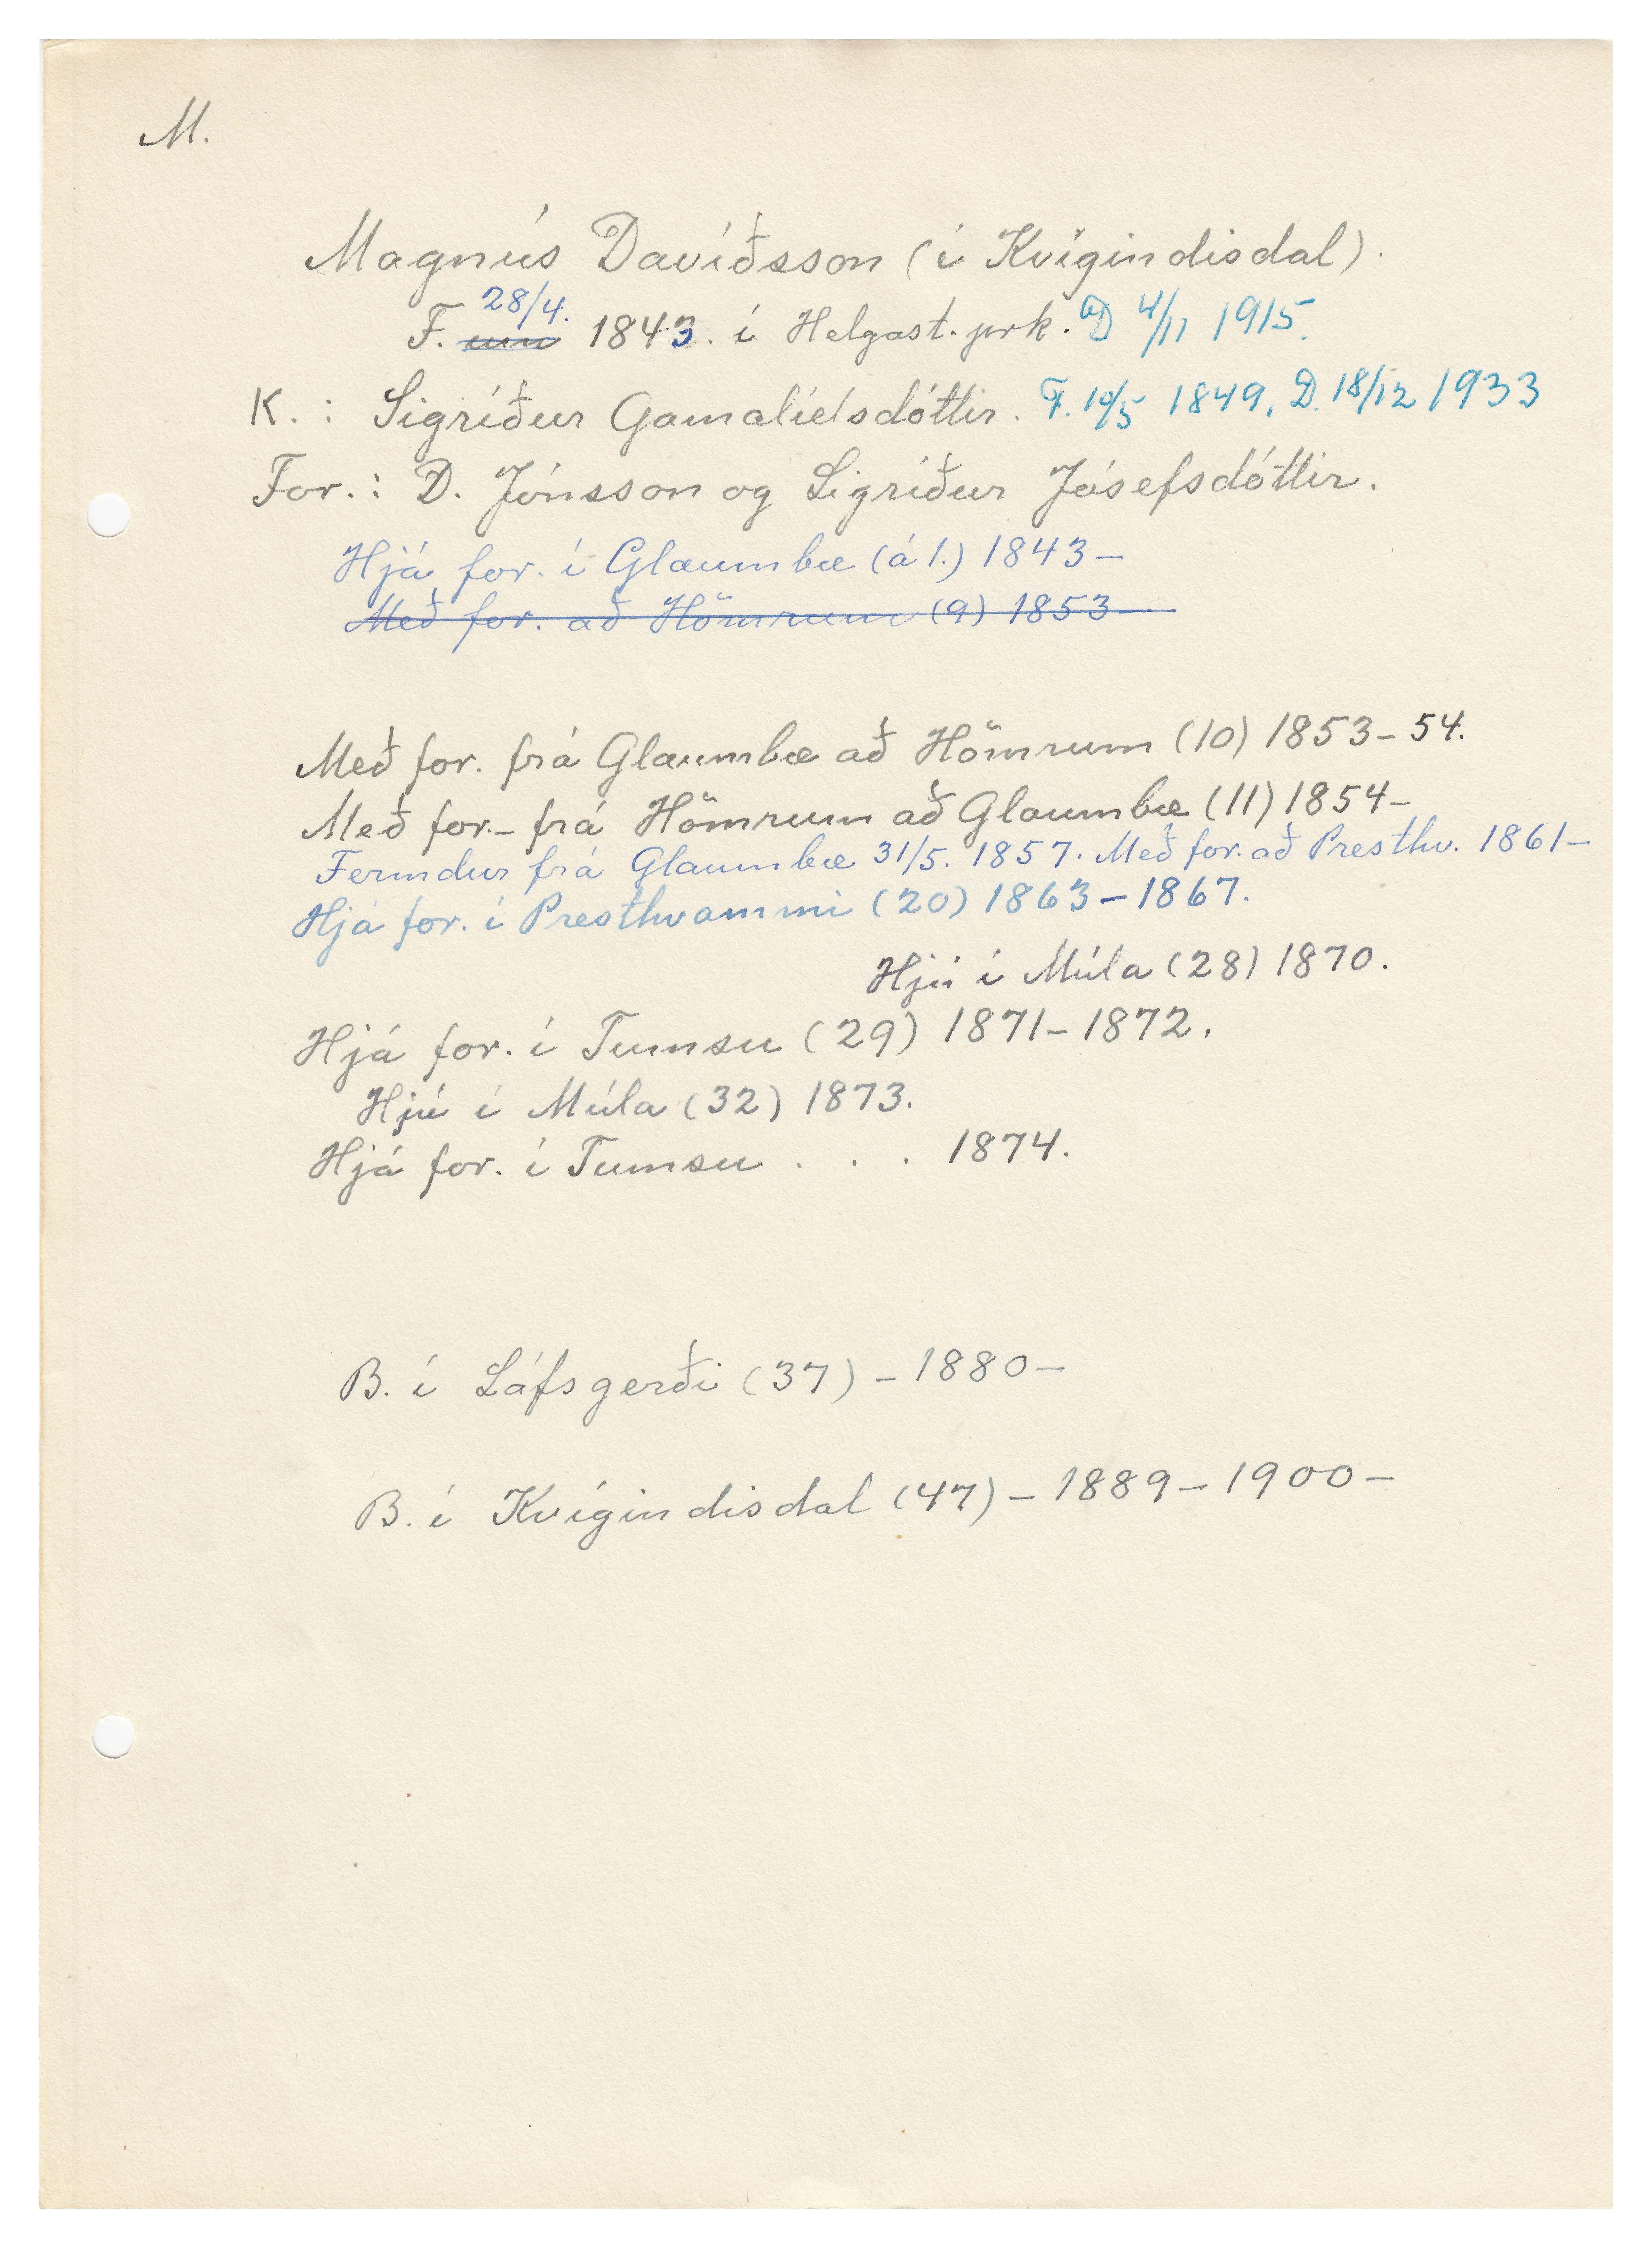 M.
Magnús Davíðsson (í Kvígindisdal).
28/4.
F. um 1843. í Helgast.prk. D 4/11 1915.
K. : Sigríður Gamalíelsdóttir. F. 10/5 1849. D. 18/12 1933
For. : D. Jónsson og Sigríður Jósefsdóttir.
Hjá for. í Glaumbæ (á 1.) 1843-
Með for. að Hömrum (9) 1853-
Með for. frá Glaumbæ að Hömrum (10) 1853-54.
Með for.- frá Hömrum að Glaumbæ (11) 1854-
Fermdur frá Glaumbæ 31/5. 1857. Með for. að Presthv. 1861-
Hjá for. í Presthvammi (20) 1863-1867.
Hjú í Múla (28) 1870.
Hjá for. í Tumsu (29) 1871-1872.
Hjú í Múla (32) 1873.
Hjá for. í Tumsu . . . 1874.
B. í Láfsgerði (37) - 1880-
B. í Kvígindisdal (47) - 1889-1900-